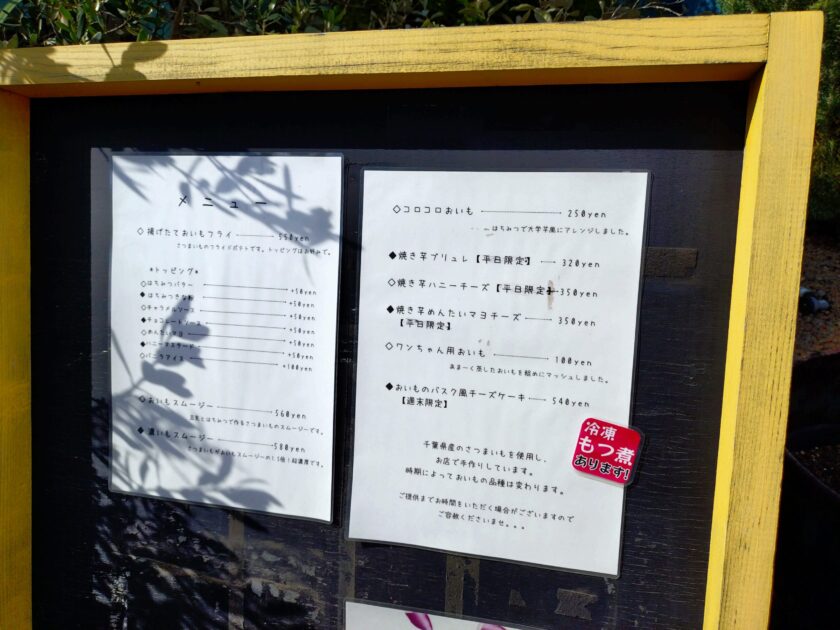 メニュー
◇揚げたておいもフライ 550yen
さつまいものフライドポテトです。トッピングはお好みで。
*トッピング*
◇はちみつバター +50yen
◆はちみつきな粉 +50yen
◇キャラメルソース +50yen
◆チョコレートソース +50yen
◇めんたいマヨ +50yen
◆ハニーマスタード +50yen
◇バニラアイス +100yen
◇おいもスムージー 560yen
豆乳とはちみつで作るさつまいものスムージーです。
◆濃いもスムージー 580yen
さつまいもがおいもスムージーの1.5倍!超濃厚です。
◇コロコロおいも 250yen
はちみつで大学芋風にアレンジしました。
◆焼き芋ブリュレ【平日限定】 320yen
◇焼き芋ハニーチーズ【平日限定】 350yen
◆焼き芋めんたいマヨチーズ 350yen
【平日限定】
◇ワンちゃん用おいも 100yen
あまーく蒸したおいもを粗めにマッシュしました。
◆おいものバスク風チーズケーキ 540yen
【週末限定】
千葉県産のさつまいもを使用し、
お店で手作りしています。
時期によっておいもの品種は変わります。
ご提供までお時間をいただく場合がございますので
ご容赦くださいませ。。。
冷凍
もつ煮
あります!